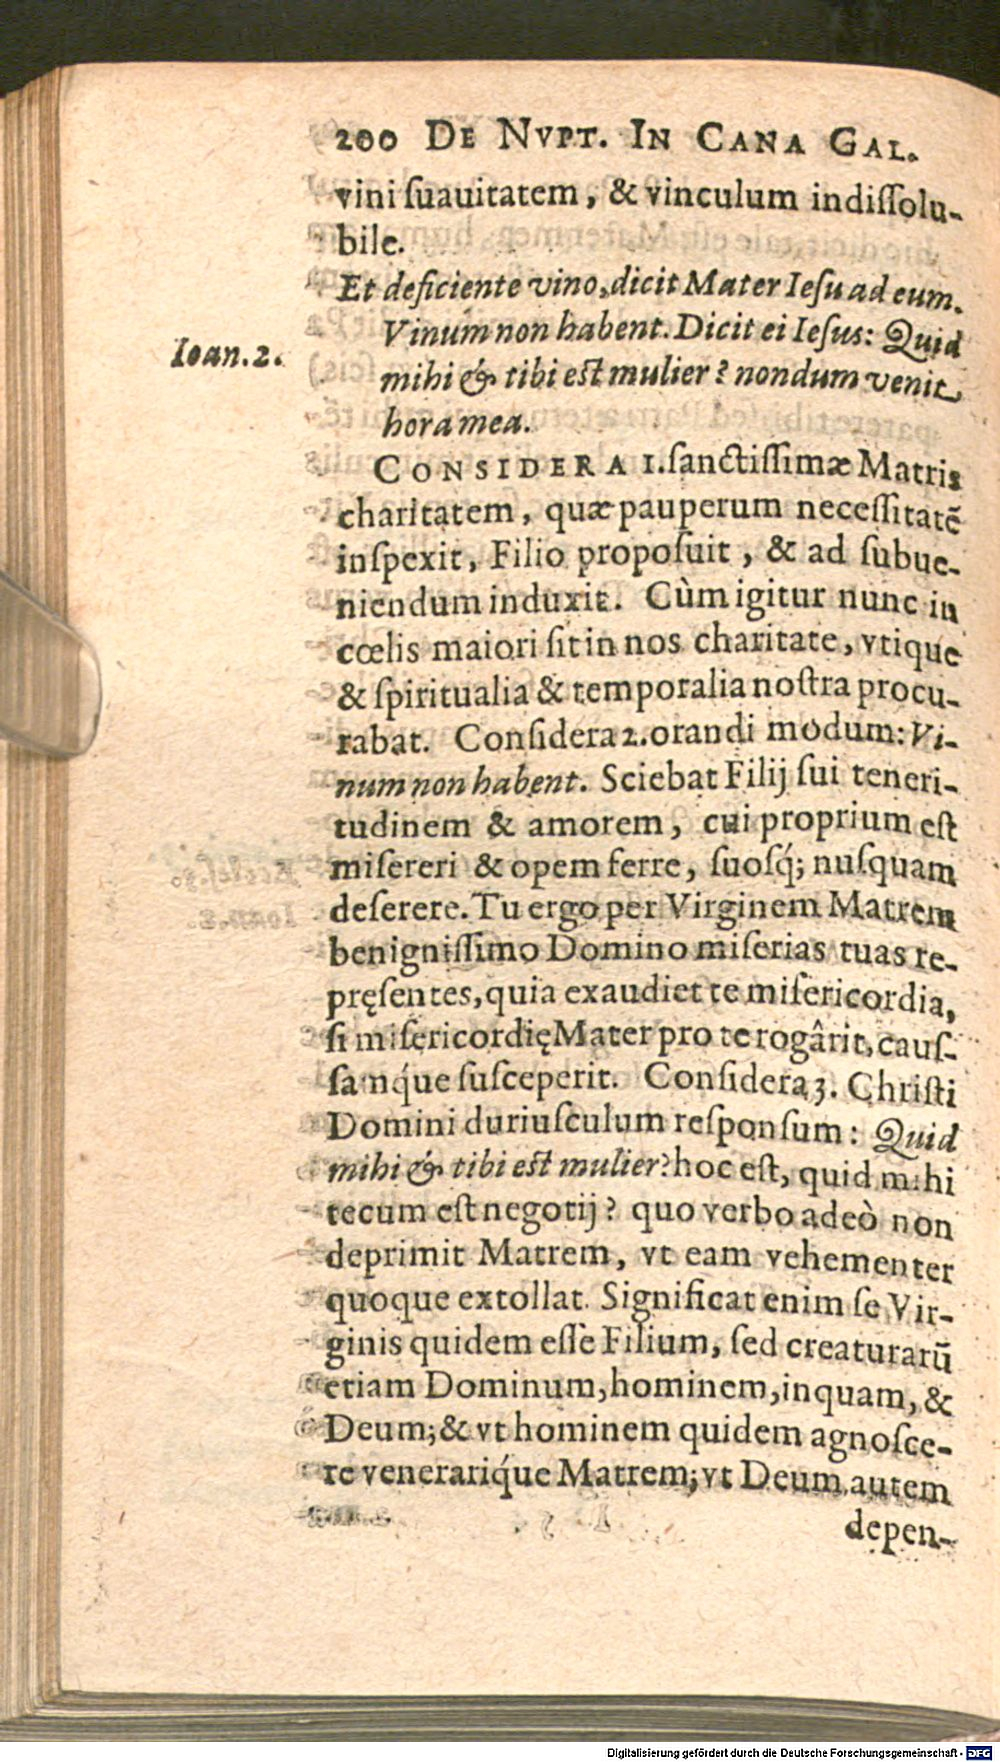 200 DE NVPT. IN CANA GAL.
vini ſuauitatem, & vinculum indiſſolu-
bile.
Et deficiente vino, dicit Mater Ieſu ad eum.
Vinum non habent. Dicit ei Ieſus: Quid
Ioan. 2.
mihi & tibi est mulier? nondum venit
hora mea.
CONSIDERA 1. ſanctiſſimæ Matris
charitatem, quæ pauperum neceſſitatē
inſpexit, Filio propoſuit, & ad ſubue-
niendum induxit. Cùm igitur nunc in
cœlis maiori ſit in nos charitate, vtique
& ſpiritualia & temporalia noſtra procu-
rabat. Conſidera 2. orandi modum: Vi-
num non habent. Sciebat Filij ſui teneri-
tudinem & amorem, cui proprium eſt
miſereri & opem ferre, ſuoſq́; nuſquam
deſerere. Tu ergo per Virginem Matrem
benigniſſimo Domino miſerias tuas re-
pręſentes, quia exaudiet te miſericordia,
ſi miſericordię Mater pro te rogârit, cauſ-
ſamq́ue ſuſceperit. Conſidera 3. Chriſti
Domini duriuſculum reſponſum: Quid
mihi & tibi est mulier? hoc eſt, quid mihi
tecum eſt negotij? quo verbo adeò non
deprimit Matrem, vt eam vehementer
quoque extollat. Significat enim ſe Vir-
ginis quidem eſſe Filium, ſed creaturarū
etiam Dominum, hominem, inquam, &
Deum; & vt hominem quidem agnoſce-
re venerariq́ue Matrem; vt Deum autem
depen-
Digitalisierung gefördert durch die Deutsche Forschungsgemeinschaft - DFG